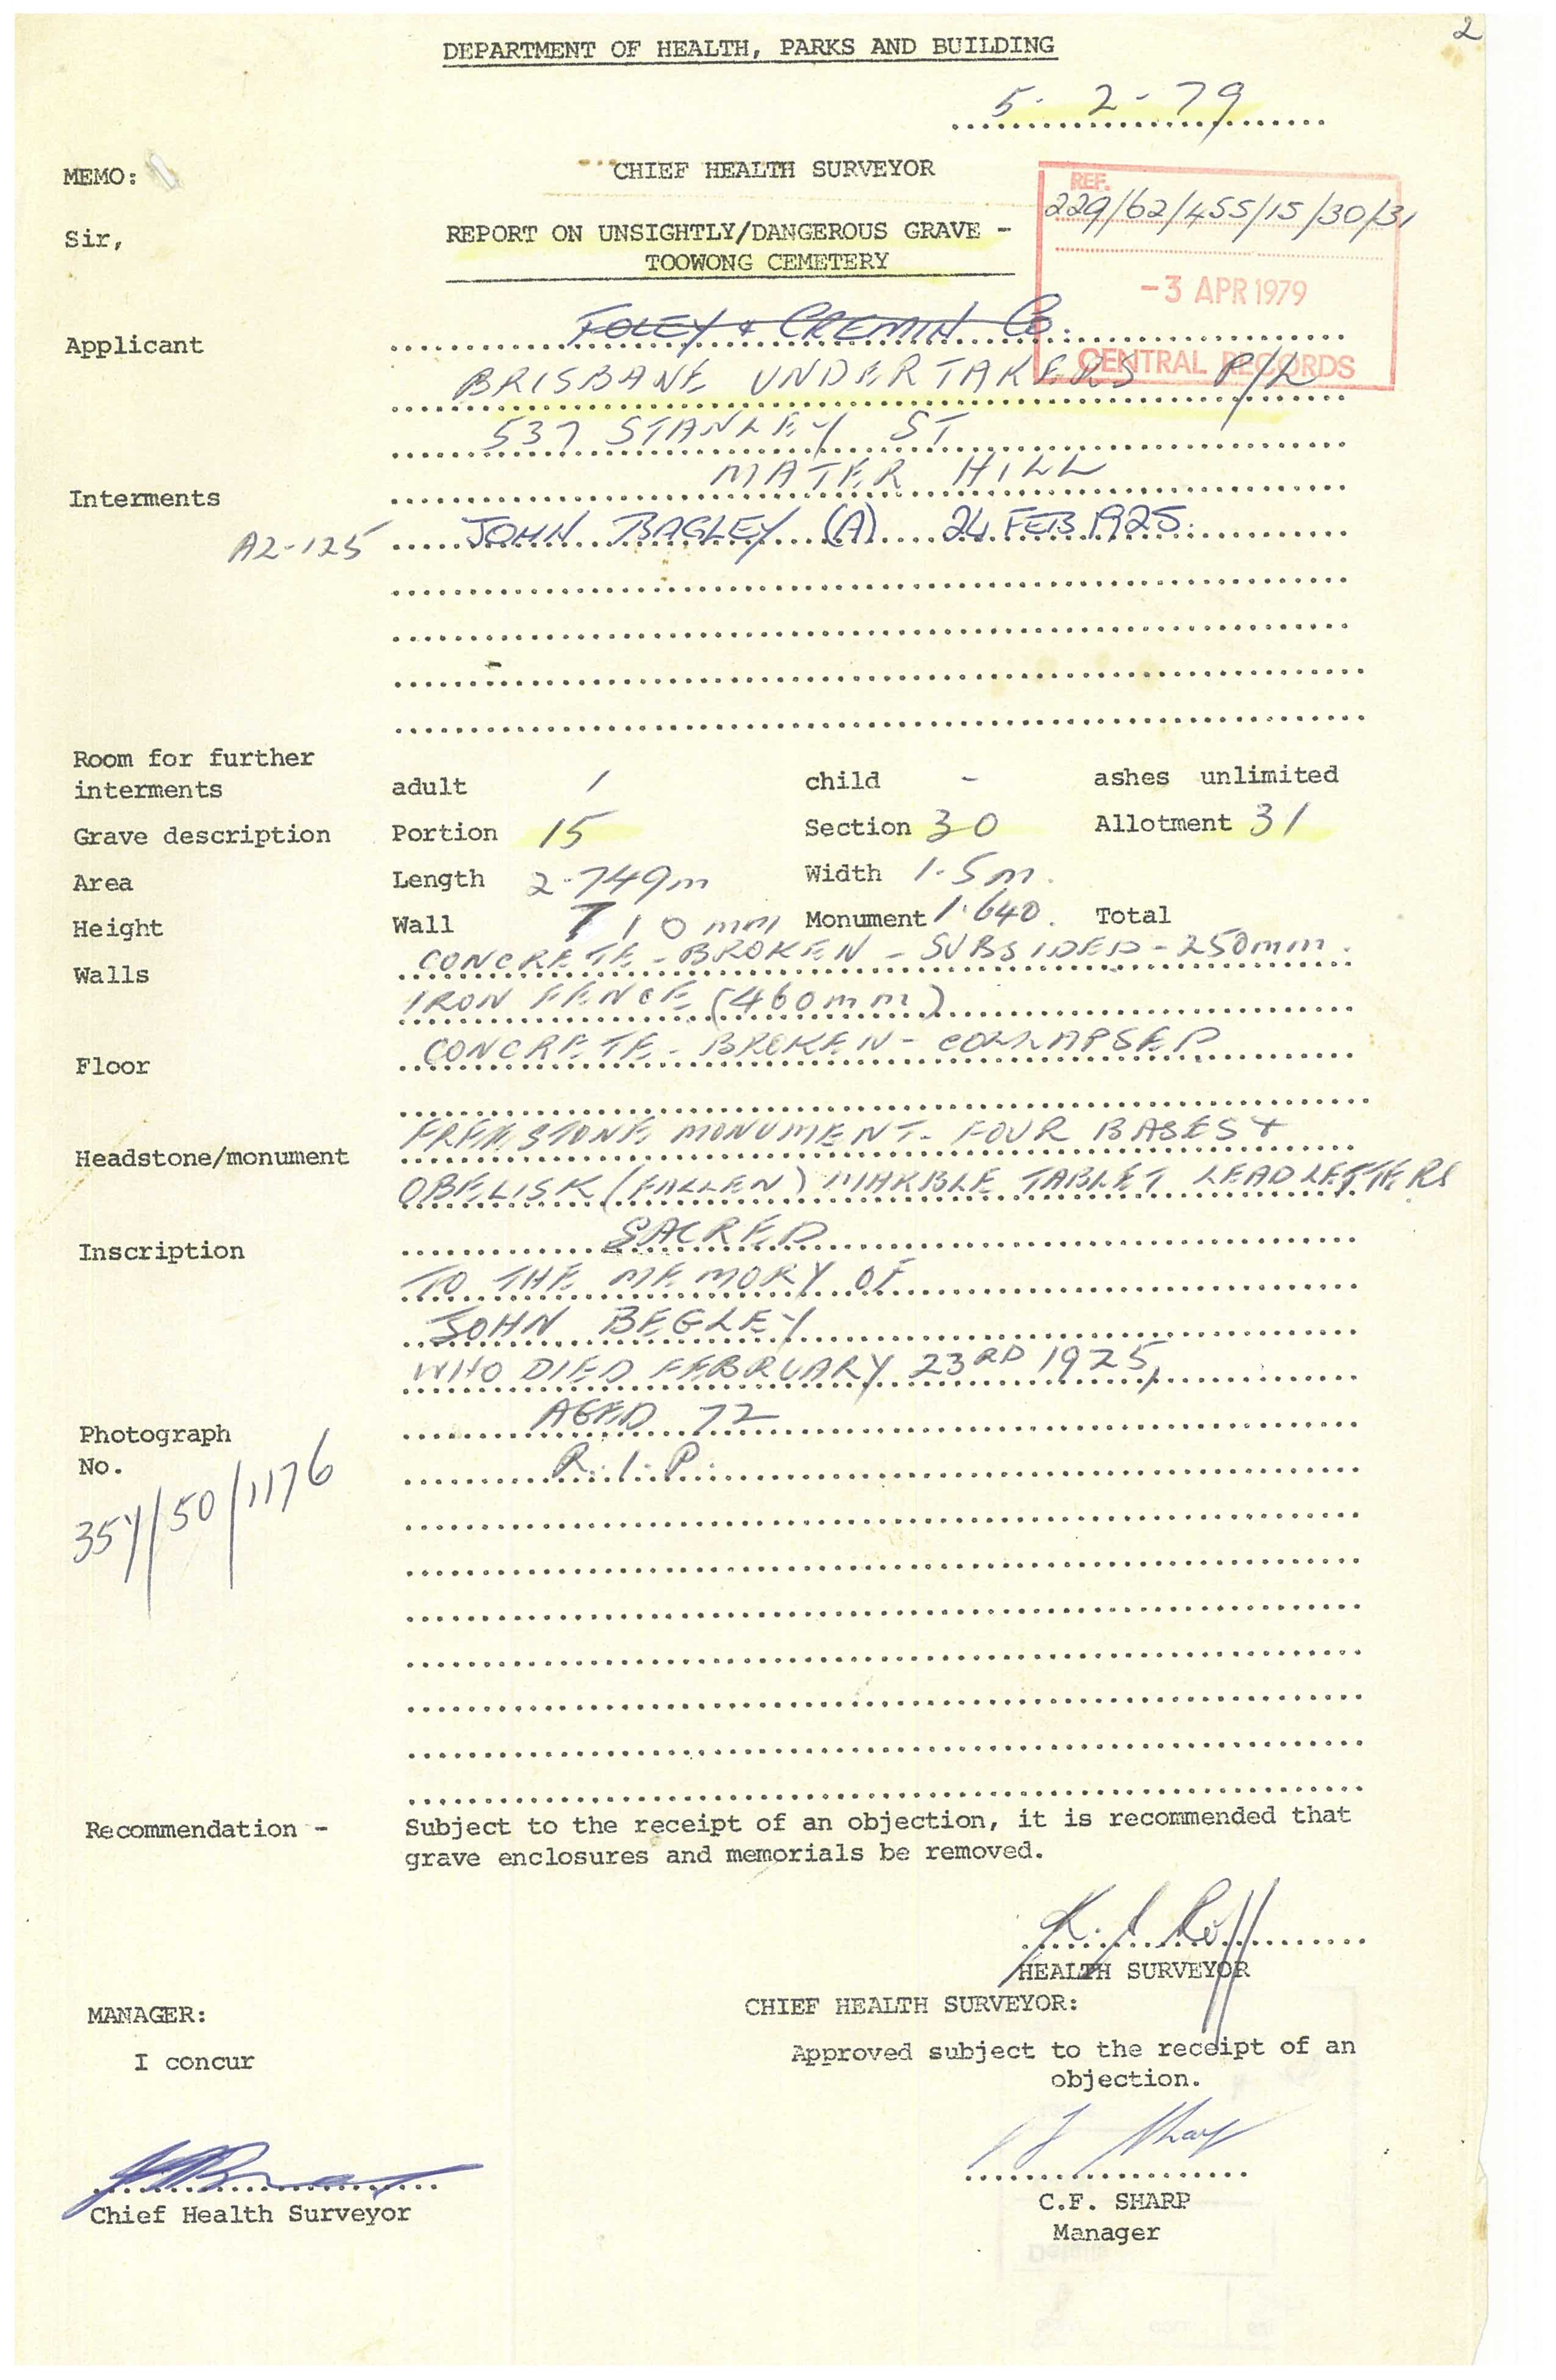 2
DEPARTMENT OF HEALTH, PARKS AND BUILDING
5-2-79
MEMO:
CHIEF HEALTH SURVEYOR
REF.
229/62/455/15/30/31
Sir,
REPORT ON UNSIGHTLY/DANGEROUS GRAVE -
TOOWONG CEMETERY
-3 APR 1979
CENTRAL RECORDS
Applicant
FOLEY + CREMIN Co.
BRISBANE UNDERTAKERS P/L
537 STANLEY ST
MATER HILL
Interments
A2-125 JOHN BAGLEY (A) 24 FEB 1925.
Room for further
interments adult 1 child - ashes unlimited
Grave description Portion 15 Section 30 Allotment 31
Area Length 2.749m Width 1.5m.
Height Wall 710mm Monument 1.640. Total
Walls CONCRETE - BROKEN - SUBSIDED - 250mm.
IRON FENCE (460mm)
Floor CONCRETE - BROKEN - COLLAPSED
Headstone/monument FREESTONE MONUMENT - FOUR BASES +
OBELISK (FALLEN) MARBLE TABLET LEAD LETTERS
Inscription SACRED
TO THE MEMORY OF
JOHN BEGLEY
WHO DIED FEBRUARY 23RD 1925,
AGED 72
R.I.P.
Photograph
No.
354/50/1176
Recommendation - Subject to the receipt of an objection, it is recommended that
grave enclosures and memorials be removed.
HEALTH SURVEYOR
MANAGER:
I concur
Chief Health Surveyor
CHIEF HEALTH SURVEYOR:
Approved subject to the receipt of an
objection.
C.F. SHARP
Manager